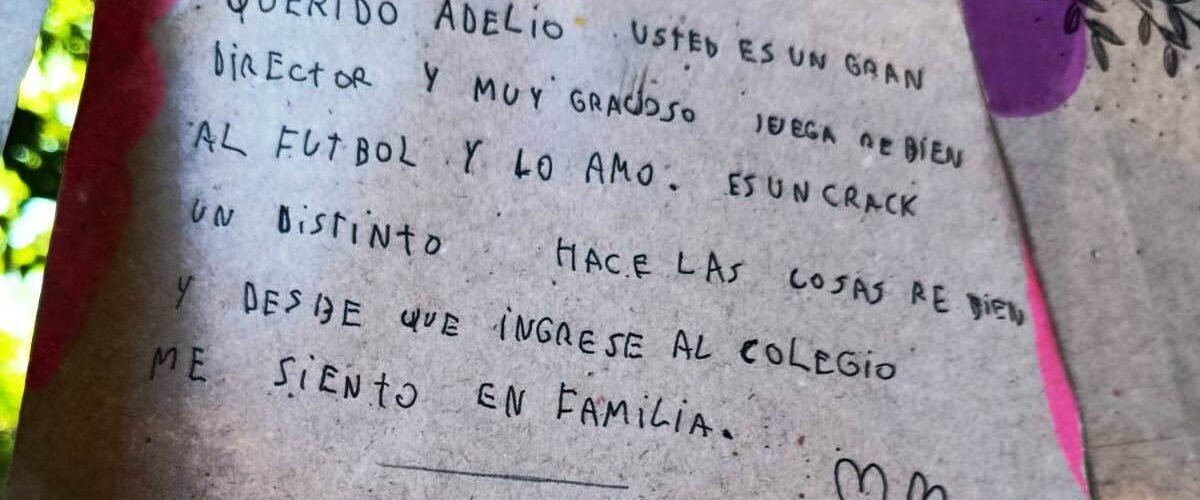 QUERIDO ADELIO USTED ES UN GRAN
DIRECTOR Y MUY GRACIOSO JUEGA RE BIEN
AL FUTBOL Y LO AMO. ES UN CRACK
UN DISTINTO HACE LAS COSAS RE BIEN
Y DESDE QUE INGRESE AL COLEGIO
ME SIENTO EN FAMILIA.